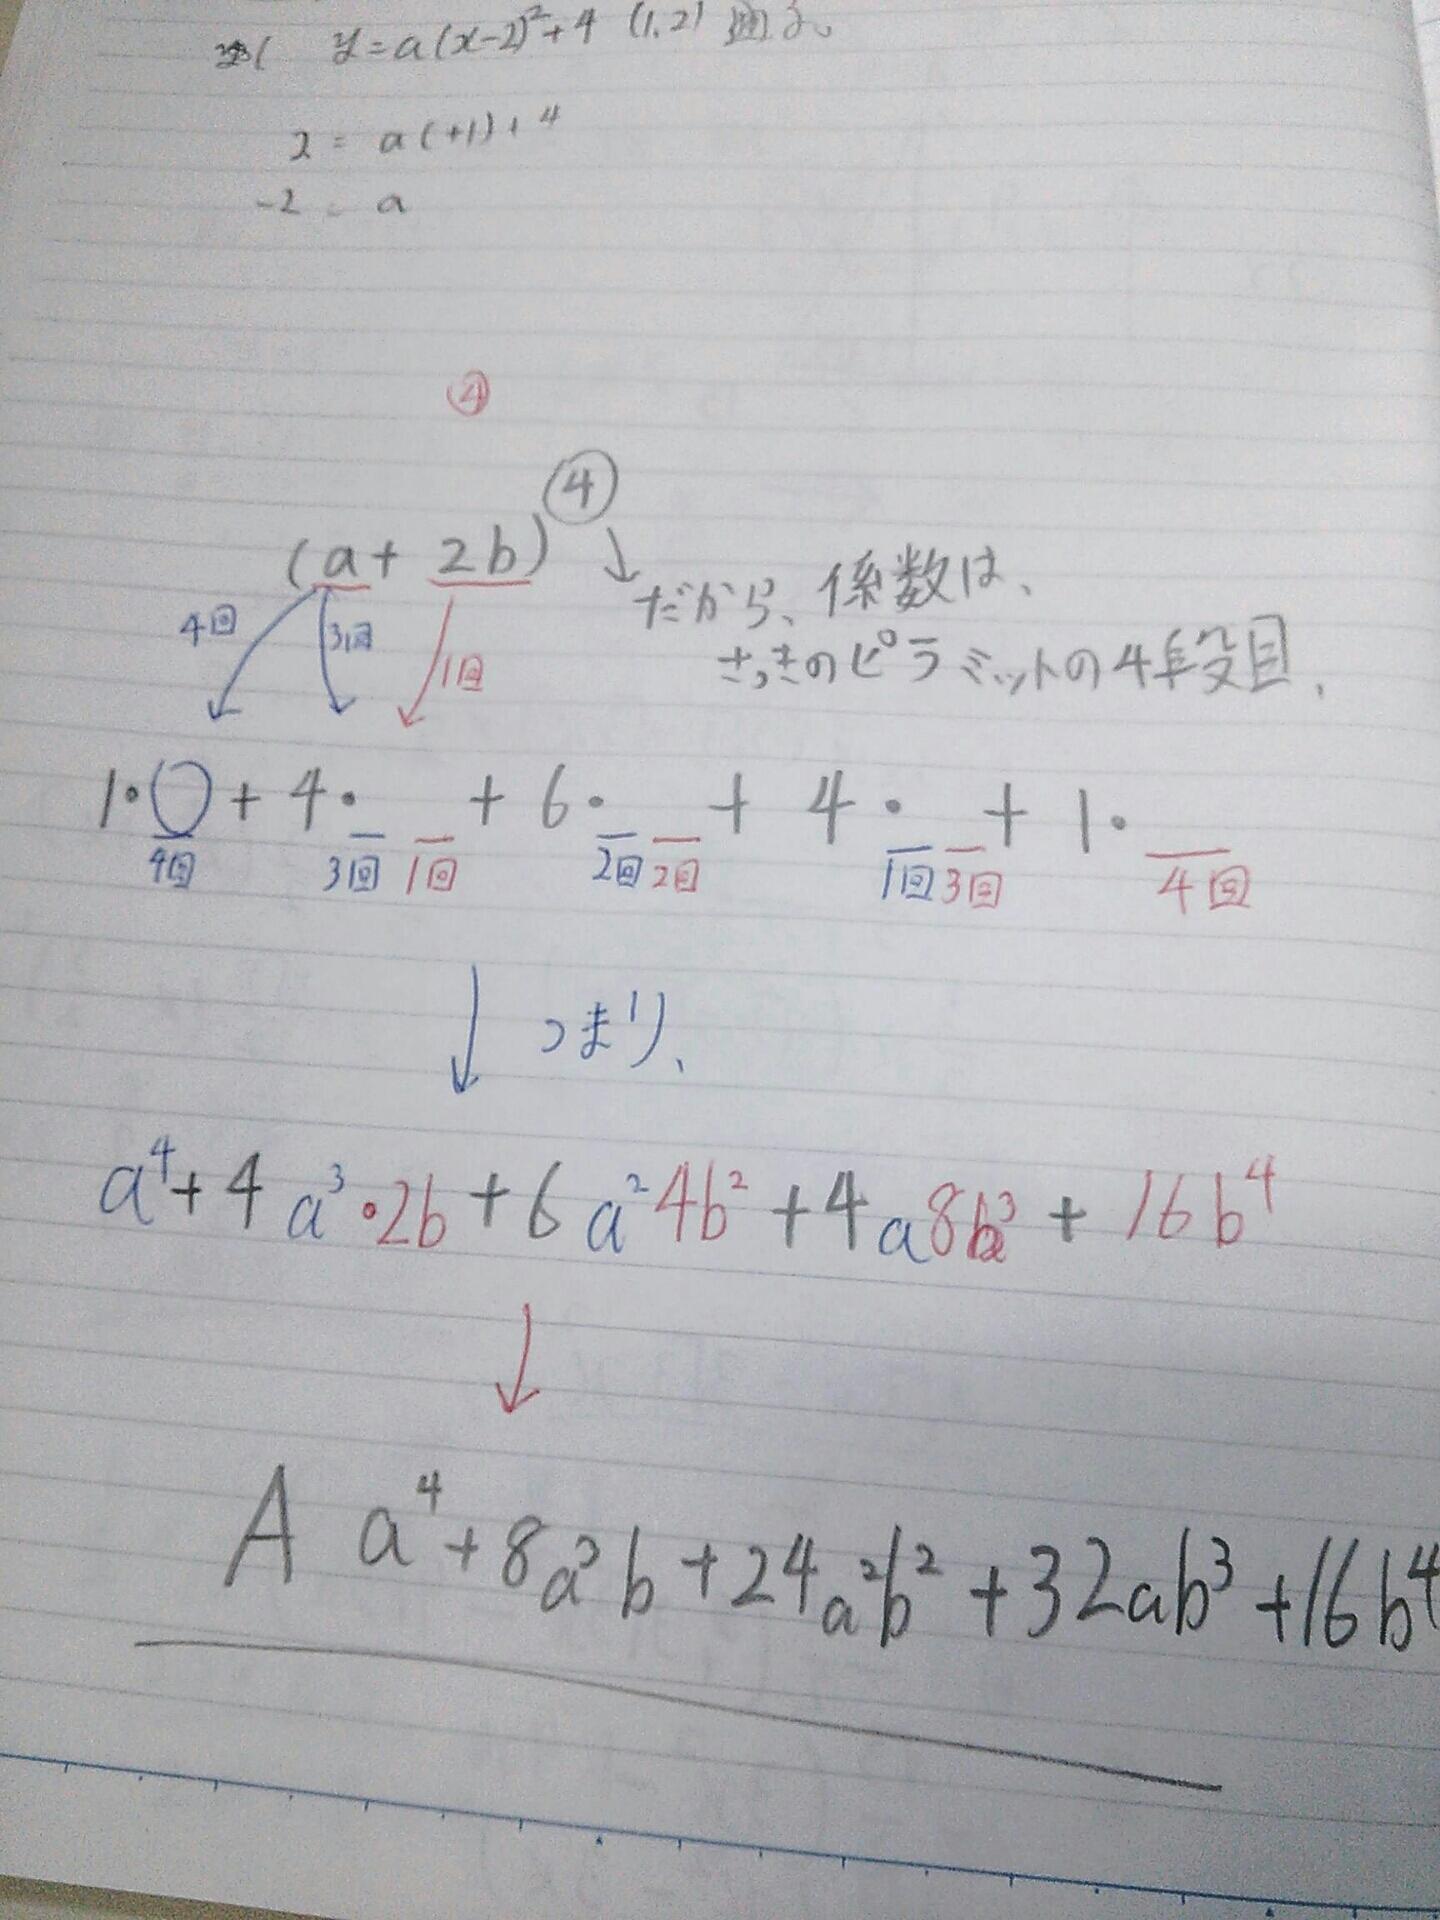 y=a(x-2)²+4 (1,2) 通る。
2 = a(+1)+4
-2 = a
④
(a+2b)④
だから、係数は、
さっきのピラミットの4段目、
4回 3回 1回
1・○+4・ +6・ +4・ +1・
4回 3回 1回 2回 2回 1回 3回 4回
つまり、
a⁴+4a³・2b+6a²4b²+4a8b³+16b⁴
A a⁴+8a³b+24a²b²+32ab³+16b⁴